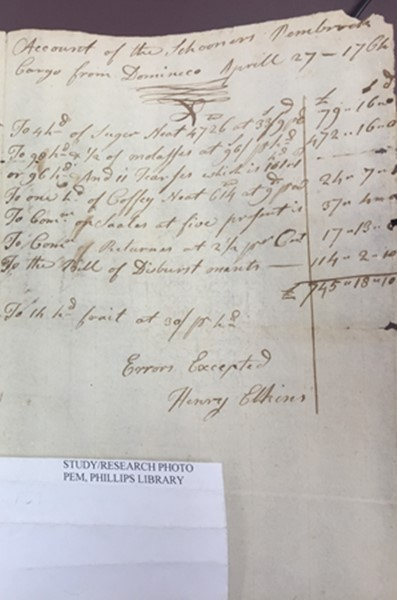 Account of the Schooners Pembrock
Cargo from Dominico Aprill 27 - 1764
£ s d
To 4 hd of Suger Neat 4726 at 33/9 pr 79 - 16 - 0
To 98 hd & 1/2 of molasses at 96/ pr hd 472 - 16 - 0
or 96 hd And 11 Tearses which is
To one hd of Coffey Neat 614 at 24 - 7 -
To Comn of Saales at five pr sent is 37 -
To Comn of Returnes at 2 1/2 pr Cent 17 - 13 -
To the Bill of Disburstments — 114 - 2 - 10
£ 745 - 18 - 10
To 14 hd frait at 30/ pr hd
Errors Excepted
Henry Elkins
STUDY/RESEARCH PHOTO
PEM, PHILLIPS LIBRARY